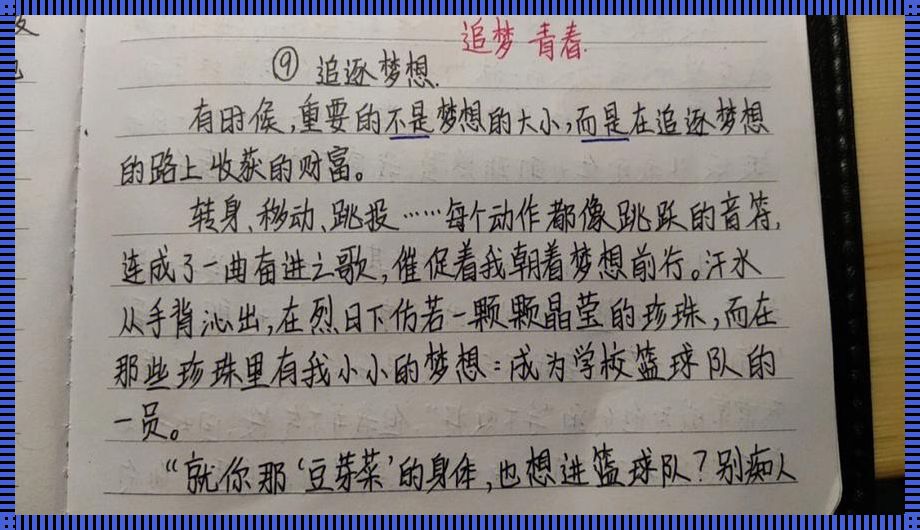 追梦 青春.
⑨ 追逐梦想.
有时候,重要的不是梦想的大小,而是在追逐梦想
的路上收获的财富。
转身、移动、跳投……每个动作都像跳跃的音符,
连成了一曲奋进之歌,催促着我朝着梦想前行。汗水
从手背沁出,在烈日下仿若一颗颗晶莹的珍珠,而在
那些珍珠里有我小小的梦想:成为学校篮球队的
一员。
“就你那‘豆芽菜’的身体,也想进篮球队?别痴人